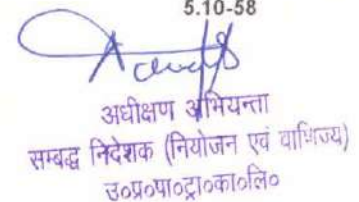 5.10-58
अधीक्षण अभियन्ता
सम्बद्ध निदेशक (नियोजन एवं वाणिज्य)
उ०प्र०पा०ट्रा०का०लि०